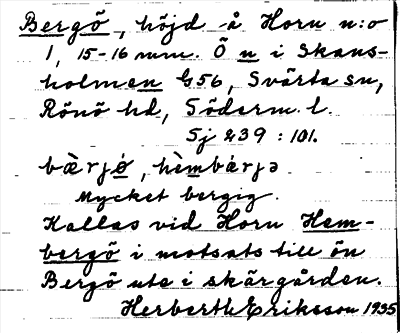 Bergö, höjd å Horn n:o
1, 15-16 mm. Ö n i Skans-
holmen G56, Svärta sn,
Rönö hd, Söderm. l.
Sj 239 : 101.
bæ̀rjọ, hèmbærjə
Mycket bergig.
Kallas vid Horn Hem-
bergö i motsats till ön
Bergö ute i skärgården.
Herbert Eriksson 1935